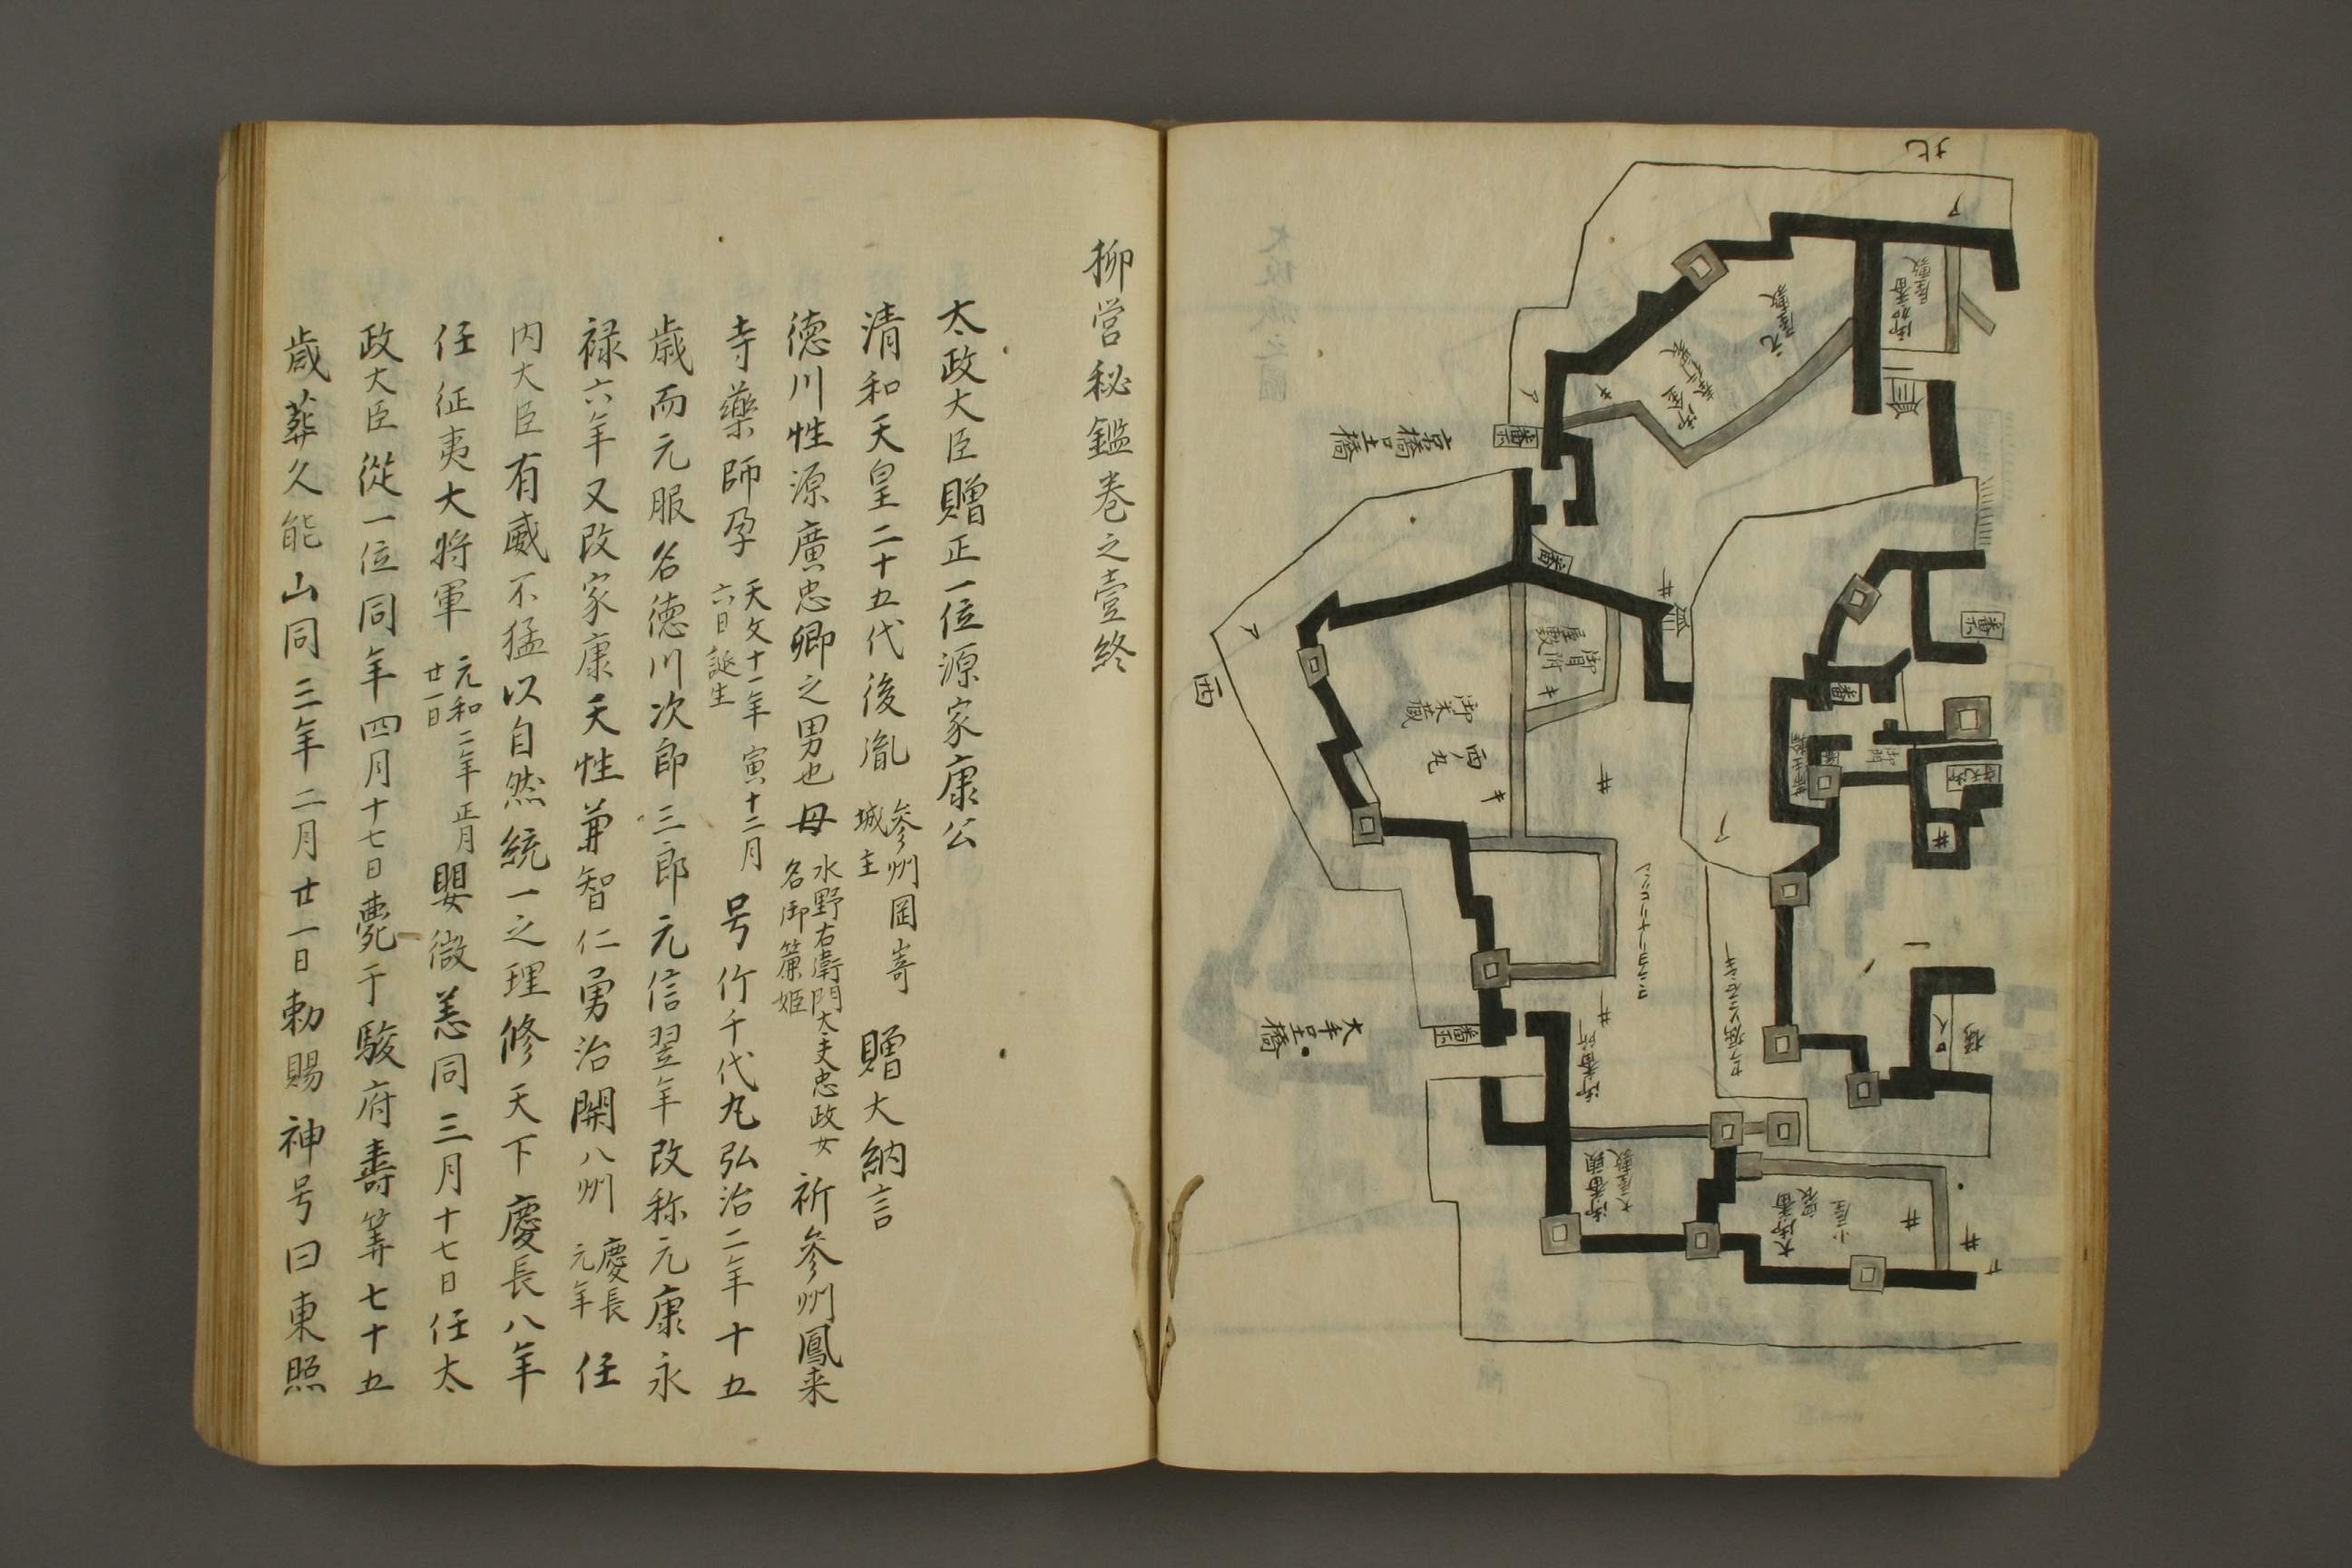 北
西
京橋口土橋
番所
元屋敷
御加番
屋敷
番
御目付
屋敷
御米蔵
西ノ丸
大手口土橋
番所
御番所
御番頭
大屋敷
大御番
衆
小屋
カラ堀ミシセキ
番所
番
柳営秘鑑巻之壹終
太政大臣贈正一位源家康公
清和天皇二十五代後胤 参州岡嵜城主 贈大納言
徳川性源廣忠卿之男也母 水野右衛門大夫忠政女名御簾姫 祈参州鳳来
寺藥師孕 天文十一年寅十二月六日誕生 号竹千代丸弘治二年十五
歳而元服名徳川次郎三郎元信翌年改称元康永
禄六年又改家康天性兼智仁勇治開八州 慶長元年 任
内大臣有威不猛以自然統一之理修天下慶長八年
任征夷大将軍 元和二年正月廿一日 嬰微恙同三月十七日任太
政大臣從一位同年四月十七日薨于駿府壽筭七十五
歳葬久能山同三年二月廿一日勅賜神号曰東照